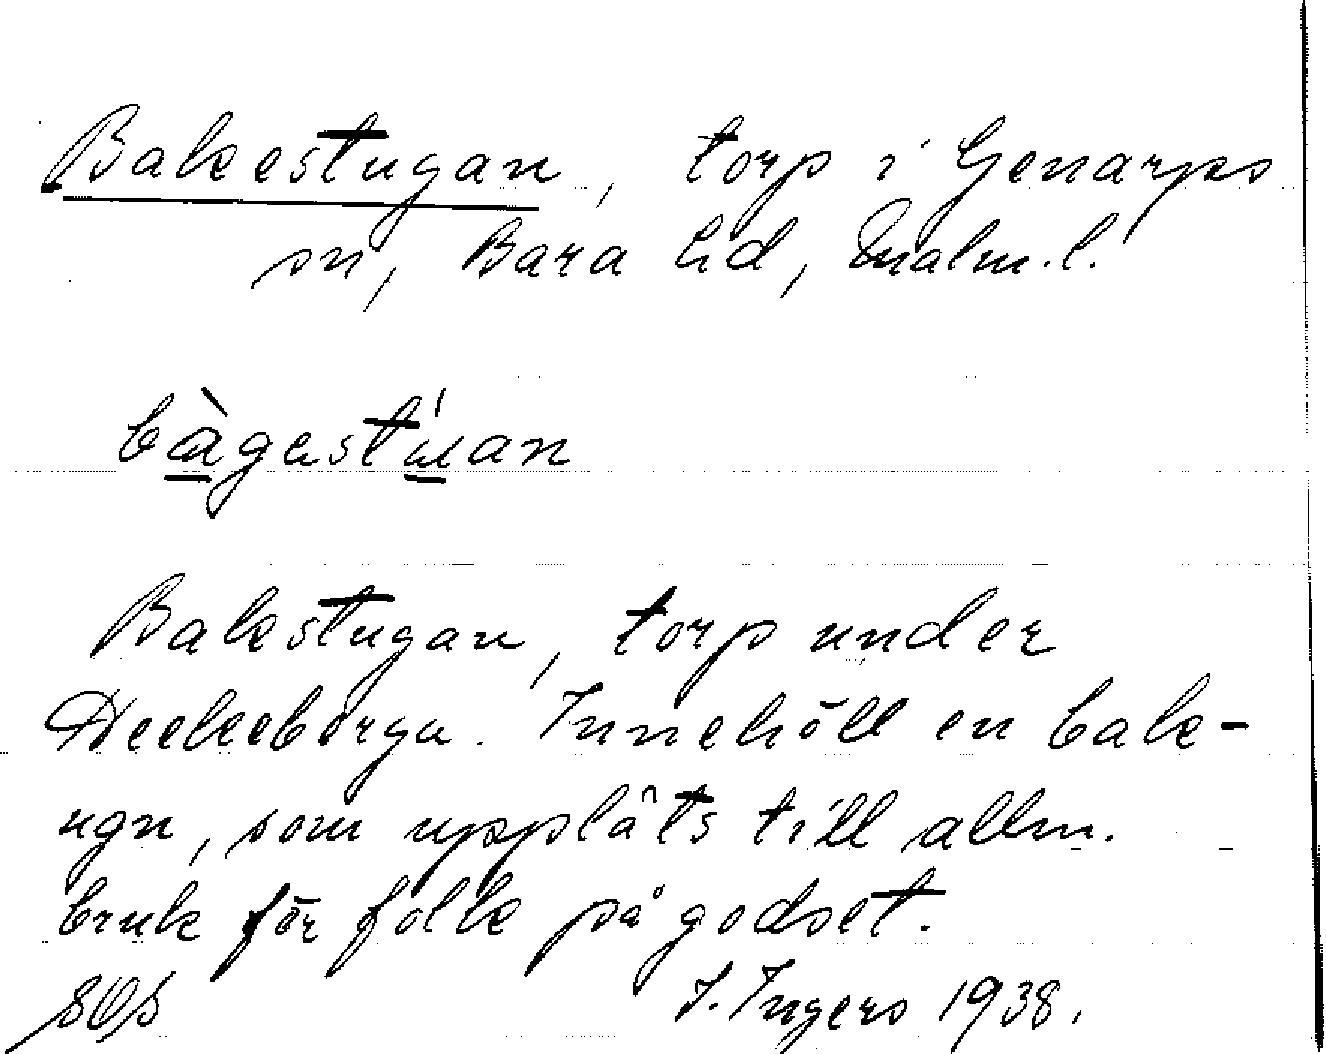 Bakestugan, torp i Genarps
sn, Bara hd, Malm.l.
bàgestúan
Bakstugan, torp under
Häckeberga. Innehöll en bak-
ugn, som uppläts till allm.
bruk för folk på godset.
SOS
I. Ingers 1938.